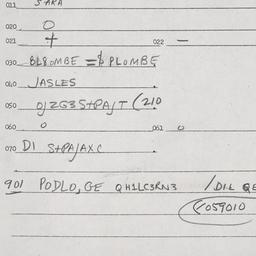 011 SARA
020 O
021 + 022 —
030 BL8OMBE =$ PLOMBE
040 JASLES
050 0JZG3S+PAJT (210
060 0 061 0
070 DI S+PAJAXC
901 PODLO,GE QH1LC3RN3 / DIL QE
8059010